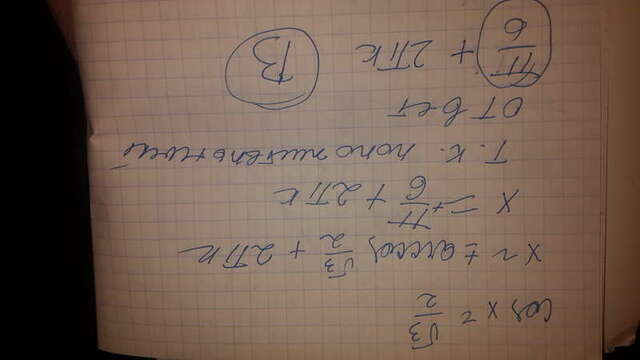 cos x = √3/2
x = ± arccos √3/2 + 2πk
x = + π/6 + 2πk
т.к. положительный
ответ
π/6 + 2πk B